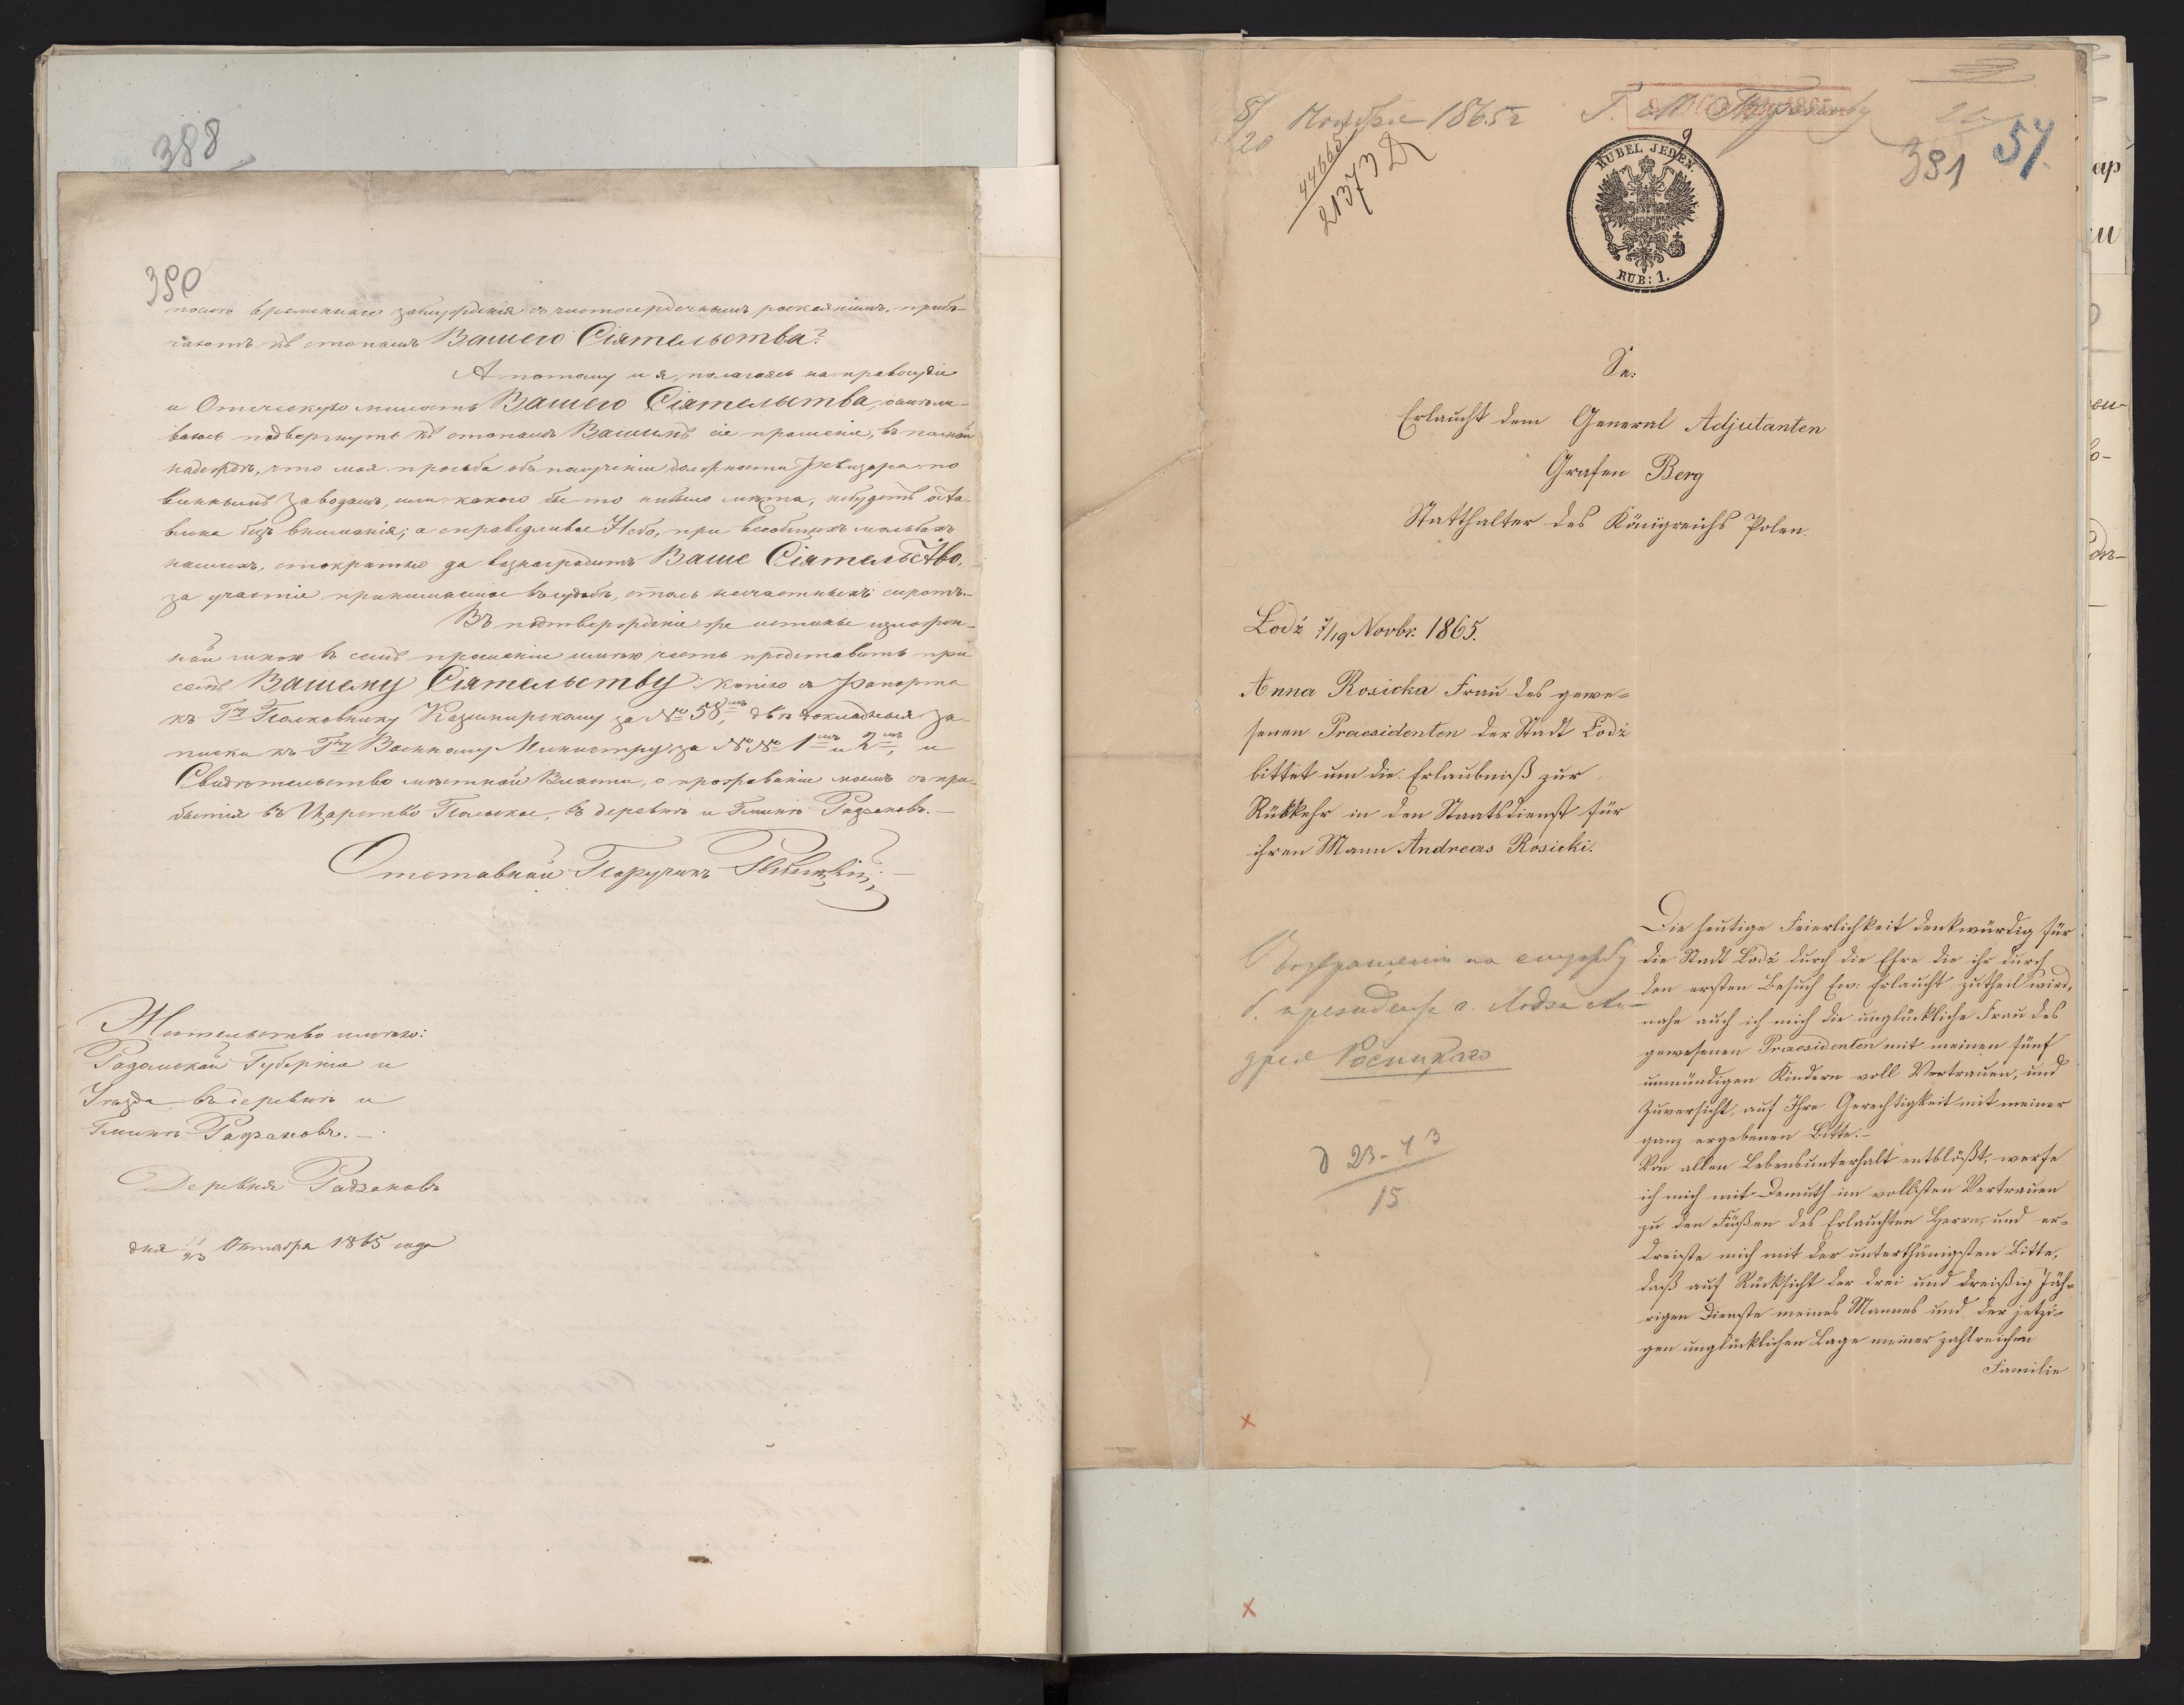 388
380
ного временнаго заблужденія съ чистосердечнымъ раскаяніемъ, прибѣ-
гаютъ къ стопамъ Вашего Сіятельства?
А потому и я, полагаясь на правосудіе
и Отеческую милость Вашего Сіятельства, осмѣли-
ваюсь подвергнуть къ стопамъ Вашимъ сіе прошеніе, въ полной
надеждѣ, что моя просьба объ полученіи должности Ревизора по
виннымъ заводамъ, или какого бы то нибыло мѣста, небудетъ оста-
влена безъ вниманія; а справедливое Небо, при всеобщихъ мольбахъ
нашихъ, стократно да вознаградитъ Ваше Сіятельство,
за участіе принимаемое въ судьбѣ, столь несчастныхъ сиротъ.—
Въ подтвержденіе же истины изложен-
ной мною въ семъ прошеніи имѣю честь представить при
семъ Вашему Сіятельству: копію съ Рапорта
къ Гну Полковнику Казимирскому за № 58мъ, двѣ докладныя за-
писки къ Гну Военному Министру за №№ 1мъ и 2мъ, и
Свидѣтельство мѣстной Власти, о проживаніи моемъ съ при-
бытія въ Царство Польское, въ деревнѣ и Гминѣ Радзановъ.—
Отставной Поручикъ
Жительство имѣю:
Радомской Губерніи и
Уѣзда въ деревнѣ и
Гминѣ Радзановъ.—
Деревня Радзановъ
дня 11/23 Октября 1865 года
8/20 Ноября 1865 г
44665
21373
381
57.
RUBEL JEDEN.
RUB: 1.
Se:
Erlaucht dem General Adjutanten
Grafen Berg
Statthalter des Königreichs Polen.
Lodź 7/19 Novbr. 1865.
Anna Rosicka Frau des gewe-
senen Praesidenten der Stadt Lodź
bittet um die Erlaubniß zur
Rükkehr in den Staatsdienst für
ihren Mann Andreas Rosicki.
О возвращеніи на службу
б. президента г. Лодзи Ан-
дрея Росицкаго
23-43
15
Die heutige Feierlichkeit denkwürdig für
die Stadt Lodź durch die Ehre die ihr durch
den ersten Besuch Ew: Erlaucht zutheil wird,
nahe auch ich mich die unglükliche Frau des
gewesenen Praesidenten mit meinen fünf
unmündigen Kindern voll Vertrauen, und
Zuversicht, auf Ihre Gerechtigkeit mit meiner
ganz ergebenen Bitte.—
Von allen Lebensunterhalt entblößt, werfe
ich mich mit Demuth im vollsten Vertrauen
zu den Füßen des Erlauchten Herrn, und er-
dreiste mich mit der unterthänigsten Bitte,
daß auf Rücksicht der drei und dreißig Jäh-
rigen Dienste meines Mannes und der jetzi-
gen unglücklichen Lage meiner zahlreichen
Familie